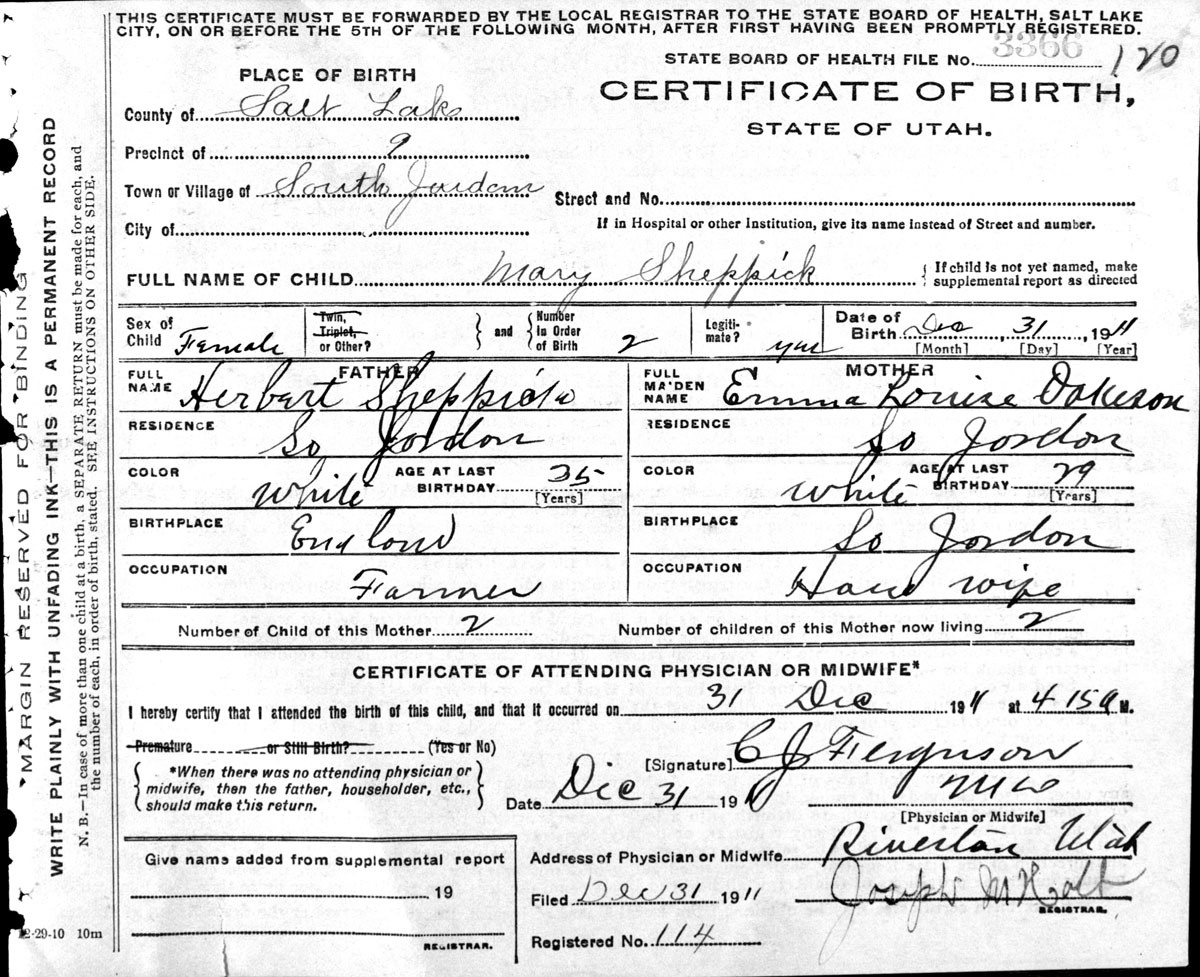 THIS CERTIFICATE MUST BE FORWARDED BY THE LOCAL REGISTRAR TO THE STATE BOARD OF HEALTH, SALT LAKE
CITY, ON OR BEFORE THE 5TH OF THE FOLLOWING MONTH, AFTER FIRST HAVING BEEN PROMPTLY REGISTERED.
STATE BOARD OF HEALTH FILE No. 3366 120
PLACE OF BIRTH
CERTIFICATE OF BIRTH,
STATE OF UTAH.
County of Salt Lake
Precinct of 9
Town or Village of South Jordan
Street and No.
City of
If in Hospital or other Institution, give its name instead of Street and number.
FULL NAME OF CHILD Mary Sheppick
{ If child is not yet named, make
supplemental report as directed
Sex of Child Female
Twin, Triplet, or Other? } and { Number in Order of Birth 2
Legiti-mate? yes
Date of Birth Dec, 31, 1911
[Month] [Day] [Year]
FATHER
MOTHER
FULL NAME Herbert Sheppick
FULL MAIDEN NAME Emma Louise Oakeson
RESIDENCE So Jordon
RESIDENCE So Jordon
COLOR White AGE AT LAST BIRTHDAY 35 [Years]
COLOR White AGE AT LAST BIRTHDAY 29 (Years]
BIRTHPLACE England
BIRTHPLACE So Jordon
OCCUPATION Farmer
OCCUPATION Hous wife
Number of Child of this Mother 2
Number of children of this Mother now living 2
CERTIFICATE OF ATTENDING PHYSICIAN OR MIDWIFE*
I hereby certify that I attended the birth of this child, and that it occurred on 31 Dec 1911 at 4 15 a M.
Premature or Still Birth? (Yes or No)
{ *When there was no attending physician or
midwife, then the father, householder, etc.,
should make this return. }
[Signature] C J Ferguson
Date Dec 31 1911
[Physician or Midwife]
Give name added from supplemental report
19
REGISTRAR.
Address of Physician or Midwife Riverton Utah
Filed Dec 31 1911 Joseph M Holt
REGISTRAR.
Registered No. 114
12-29-10 10m
*MARGIN RESERVED FOR BINDING
WRITE PLAINLY WITH UNFADING INK—THIS IS A PERMANENT RECORD
N. B.—In case of more than one child at a birth, a SEPARATE RETURN must be made for each, and
the number of each, in order of birth, stated. SEE INSTRUCTIONS ON OTHER SIDE.